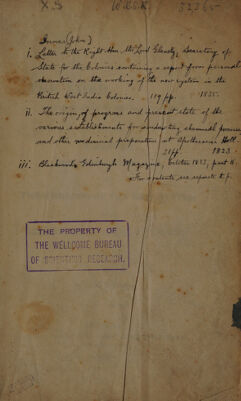 X.S W.B.R. 52265
Innes (John)
i. Letter to the Right Hon. the Lord Glenelg, Secretary of
State for the Colonies containing a report from personal
observation on the working of the new system in the
British West India Colonies. 119 pp 1835.
ii. The origin, progress and present state of the
various establishments for conducting chemical processes
and other medicinal preparations at Apothecaries Hall.
1823.
iii. Blackwood's Edinburgh Magazine, October 1823, part ii.
For contents see separate t.p.
THE PROPERTY OF
THE WELLCOME BUREAU
OF SCIENTIFIC RESEARCH.